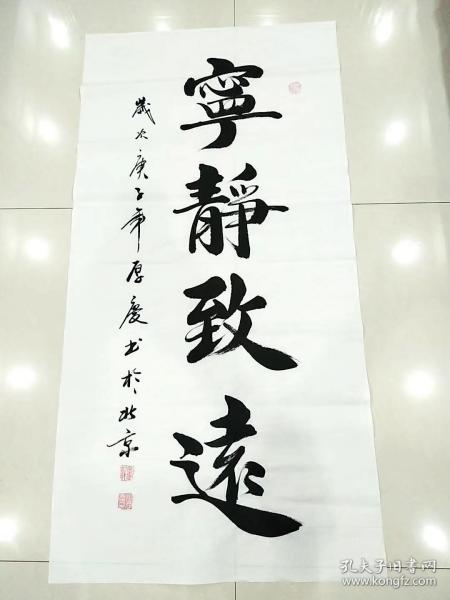 寧靜致遠
歲次庚子年厚慶书於北京
孔夫子旧书网
www.kongfz.com